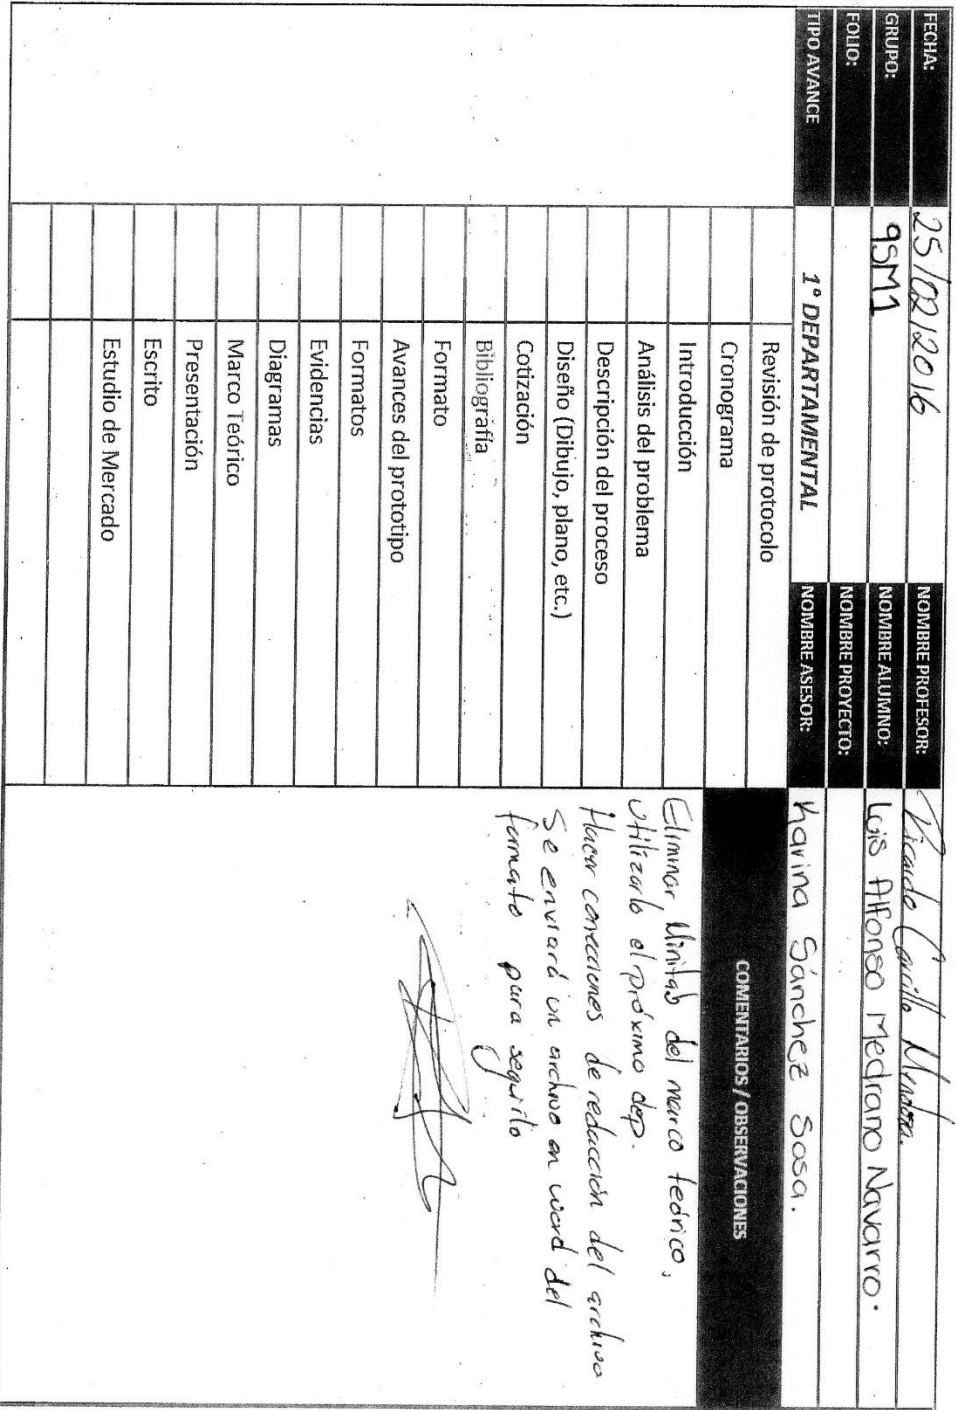 FECHA: 25/02/2016 NOMBRE PROFESOR: Ricardo Carrillo Mendoza
GRUPO: 9SM1 NOMBRE ALUMNO: Luis Alfonso Medrano Navarro.
FOLIO: NOMBRE PROYECTO:
TIPO AVANCE 1° DEPARTAMENTAL NOMBRE ASESOR: Karina Sánchez Sosa.
Revisión de protocolo
Cronograma
Introducción
Análisis del problema
Descripción del proceso
Diseño (Dibujo, plano, etc.)
Cotización
Bibliografía
Formato
Avances del prototipo
Formatos
Evidencias
Diagramas
Marco Teórico
Presentación
Escrito
Estudio de Mercado
COMENTARIOS / OBSERVACIONES
Eliminar Minitab del marco teórico,
utilizarlo el próximo dep.
Hacer correcciones de redacción del archivo
Se enviará un archivo en word del
formato para seguirlo